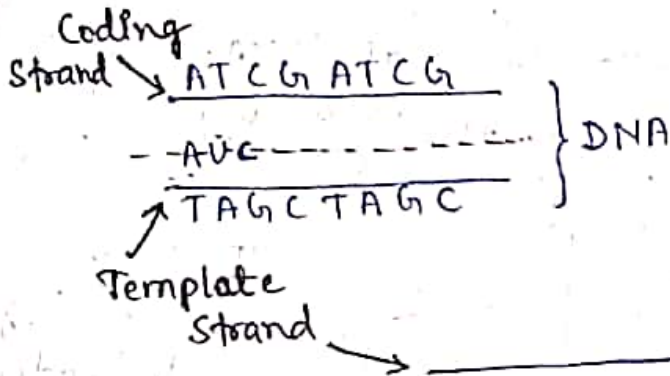 Coding
Strand
ATCG ATCG
AUC
DNA
TAGC TAGC
Template
Strand